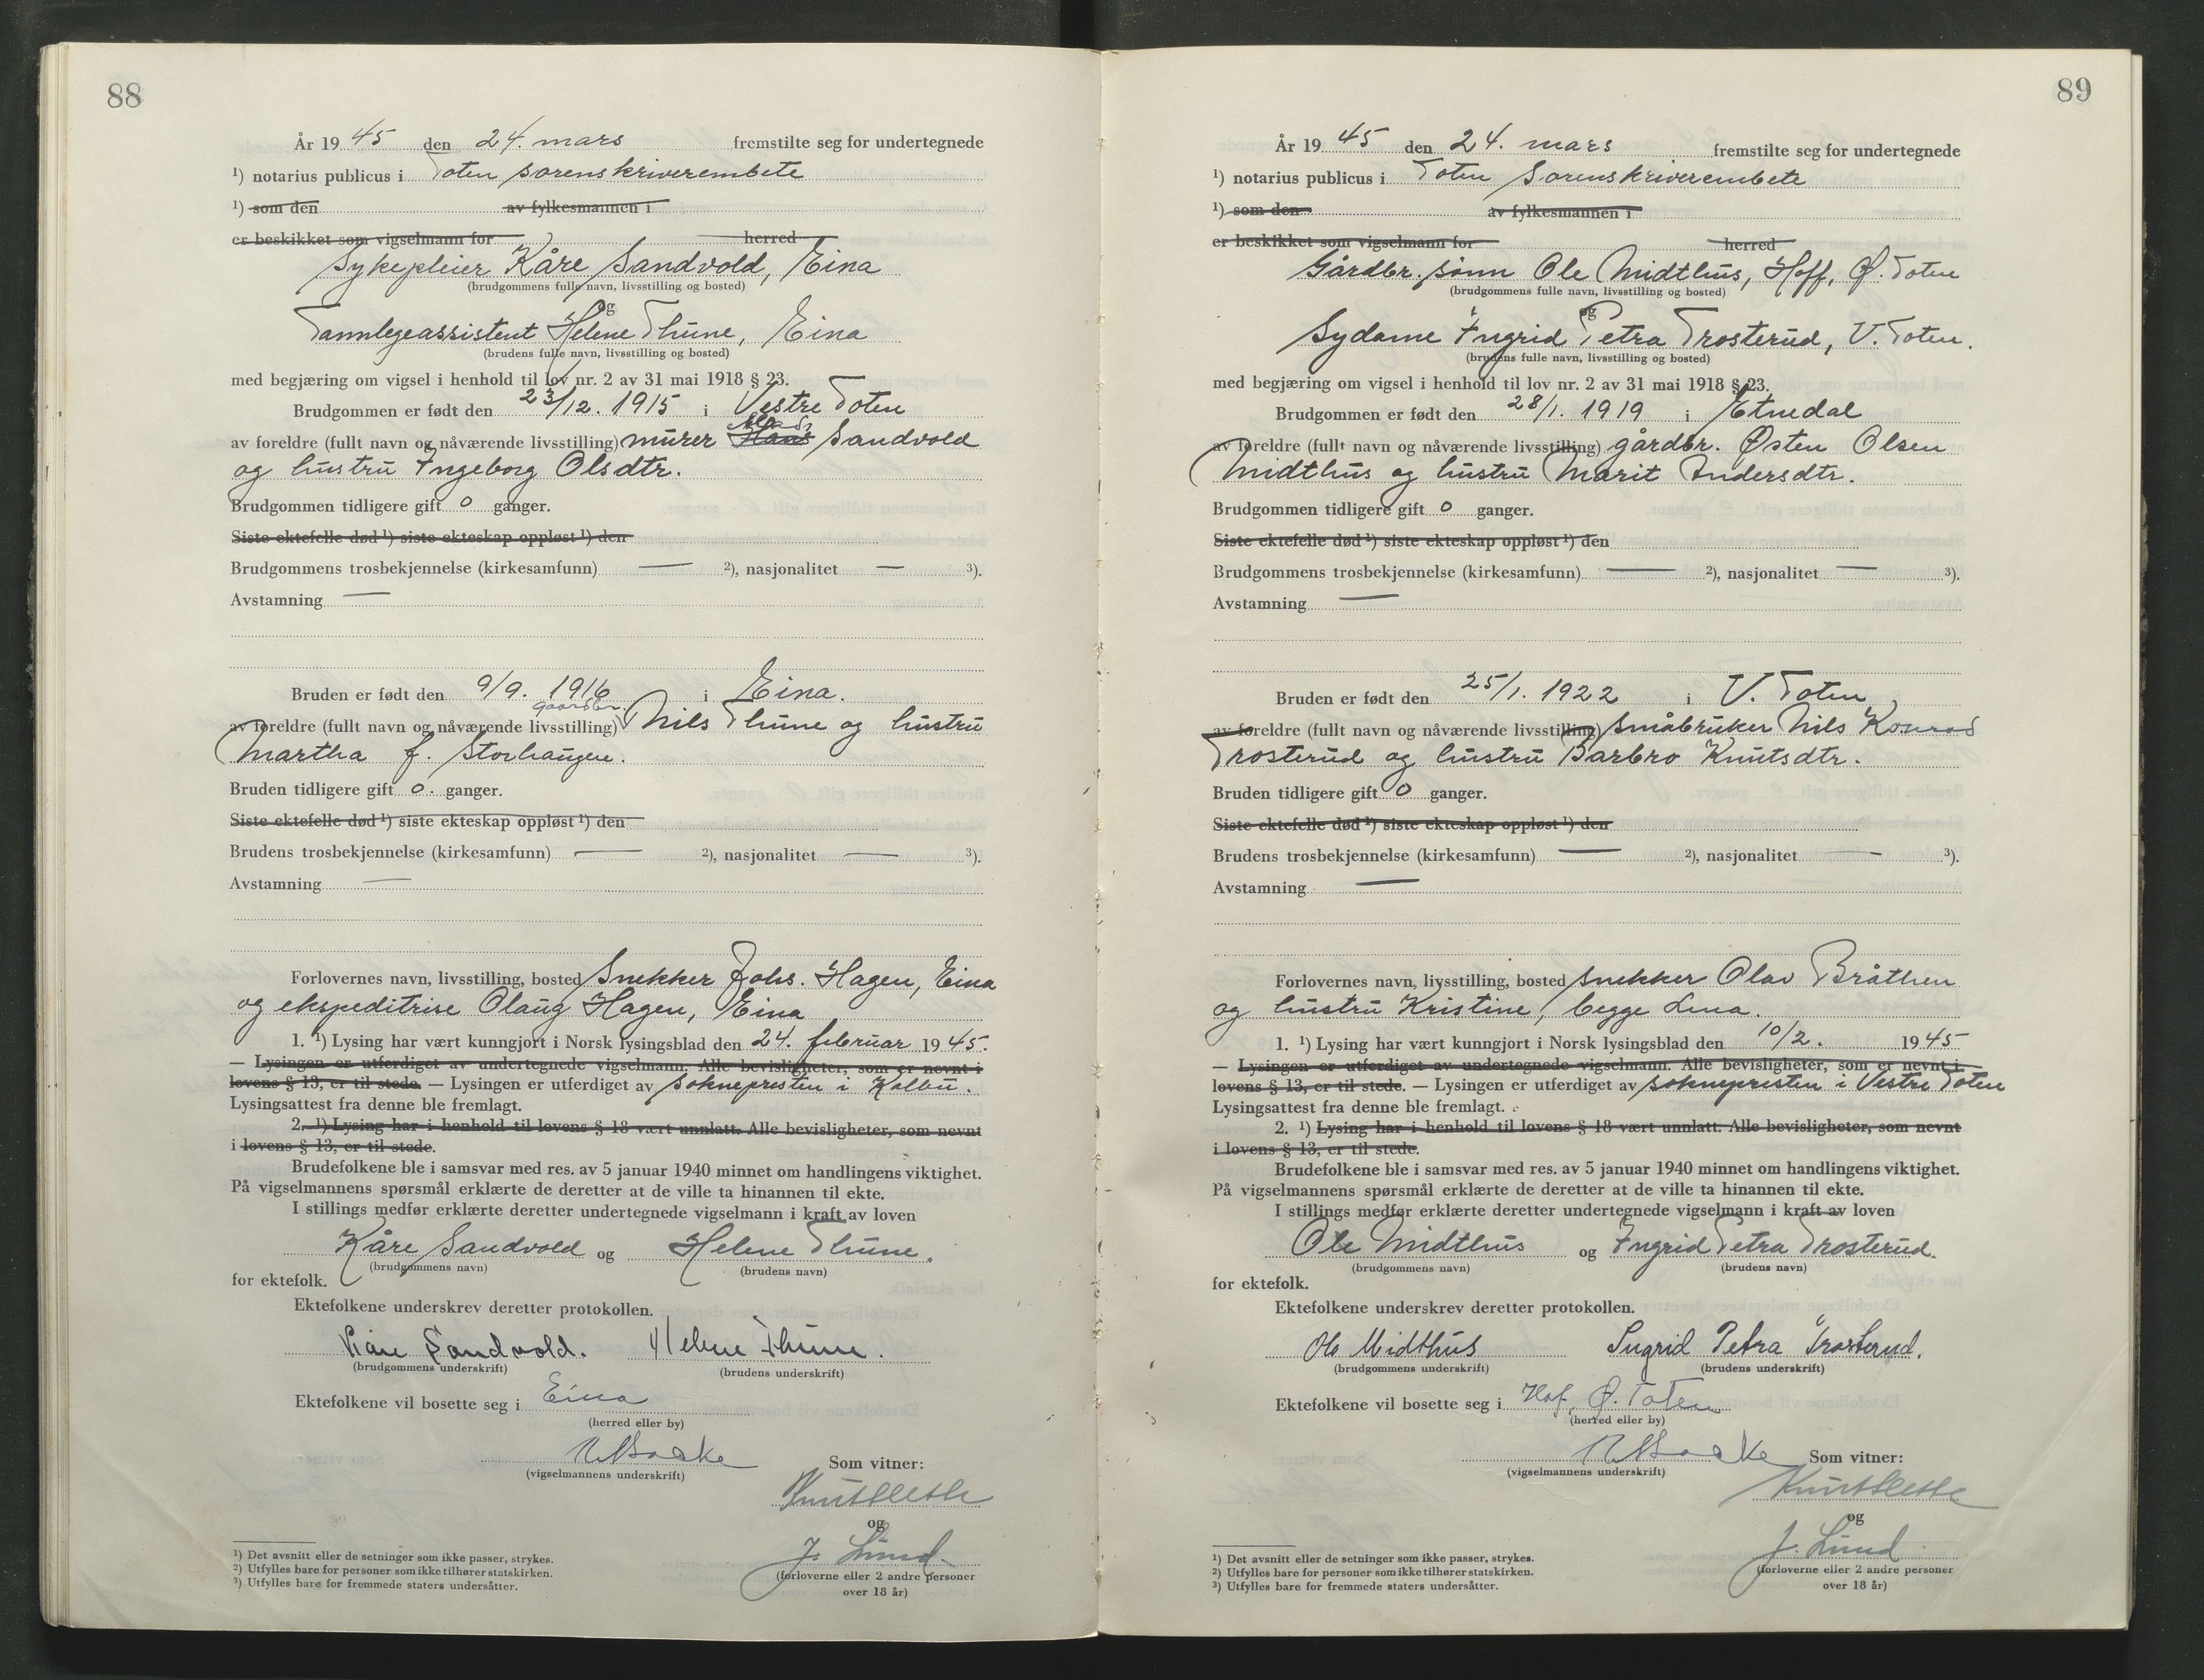 88
År 19 45 den 24. mars fremstilte seg for undertegnede
¹) notarius publicus i Toten sorenskriverembete
¹) som den av fylkesmannen i
er beskikket som vigselmann for herred
Sykepleier Kåre Sandvold, Eina
(brudgommens fulle navn, livsstilling og bosted)
og
Tannlegeassistent Helene Thune, Eina
(brudens fulle navn, livsstilling og bosted)
med begjæring om vigsel i henhold til lov nr. 2 av 31 mai 1918 § 23.
Brudgommen er født den 23/12. 1915 i Vestre Toten
av foreldre (fullt navn og nåværende livsstilling) murer Hans Sandvold
og hustru Ingeborg Olsdtr.
Brudgommen tidligere gift 0 ganger.
Siste ektefelle død ¹) siste ekteskap oppløst ¹) den
Brudgommens trosbekjennelse (kirkesamfunn) — ²), nasjonalitet — ³).
Avstamning —
Bruden er født den 9/9. 1916 i Eina.
gaardbr.
av foreldre (fullt navn og nåværende livsstilling) Nils Thune og hustru
Martha f. Storhaugen.
Bruden tidligere gift 0. ganger.
Siste ektefelle død ¹) siste ekteskap oppløst ¹) den
Brudens trosbekjennelse (kirkesamfunn) — ²), nasjonalitet — ³).
Avstamning —
Forlovernes navn, livsstilling, bosted Snekker Johs. Hagen, Eina
og ekspeditrise Olaug Hagen, Eina
1. ¹) Lysing har vært kunngjort i Norsk lysingsblad den 24. februar 19 45.
— Lysingen er utferdiget av undertegnede vigselmann. Alle bevisligheter, som er nevnt i
lovens § 13, er til stede. — Lysingen er utferdiget av soknepresten i Kolbu.
Lysingsattest fra denne ble fremlagt.
2. ¹) Lysing har i henhold til lovens § 18 vært unnlatt. Alle bevisligheter, som nevnt
i lovens § 13, er til stede.
Brudefolkene ble i samsvar med res. av 5 januar 1940 minnet om handlingens viktighet.
På vigselmannens spørsmål erklærte de deretter at de ville ta hinannen til ekte.
I stillings medfør erklærte deretter undertegnede vigselmann i kraft av loven
Kåre Sandvold og Helene Thune.
(brudgommens navn) (brudens navn)
for ektefolk.
Ektefolkene underskrev deretter protokollen.
Kåre Sandvold. Helene Thune.
(brudgommens underskrift) (brudens underskrift)
Ektefolkene vil bosette seg i Eina
(herred eller by)
(vigselmannens underskrift) Som vitner:
og
J. Lund.
(forloverne eller 2 andre personer
over 18 år)
¹) Det avsnitt eller de setninger som ikke passer, strykes.
²) Utfylles bare for personer som ikke tilhører statskirken.
³) Utfylles bare for fremmede staters undersåtter.
89
År 19 45 den 24. mars fremstilte seg for undertegnede
¹) notarius publicus i Toten Sorenskriverembete
¹) som den av fylkesmannen i
er beskikket som vigselmann for herred
Gårdbr. sønn Ole Midthus, Hoff, Ø. Toten
(brudgommens fulle navn, livsstilling og bosted)
og
Sydame Ingrid Petra Trosterud, V. Toten.
(brudens fulle navn, livsstilling og bosted)
med begjæring om vigsel i henhold til lov nr. 2 av 31 mai 1918 § 23.
Brudgommen er født den 28/1. 1919 i Etnedal
av foreldre (fullt navn og nåværende livsstilling) gårdbr. Østen Olsen
Midthus og hustru Marit Andersdtr.
Brudgommen tidligere gift 0 ganger.
Siste ektefelle død ¹) siste ekteskap oppløst ¹) den
Brudgommens trosbekjennelse (kirkesamfunn) — ²), nasjonalitet — ³).
Avstamning —
Bruden er født den 25/1. 1922 i V. Toten
av foreldre (fullt navn og nåværende livsstilling) småbruker Nils Konrad
Trosterud og hustru Barbro Knutsdtr.
Bruden tidligere gift 0 ganger.
Siste ektefelle død ¹) siste ekteskap oppløst ¹) den
Brudens trosbekjennelse (kirkesamfunn) — ²), nasjonalitet — ³).
Avstamning —
Forlovernes navn, livsstilling, bosted snekker Olav Bråthen
og hustru Kristine, begge Lena.
1. ¹) Lysing har vært kunngjort i Norsk lysingsblad den 10/2. 19 45
— Lysingen er utferdiget av undertegnede vigselmann. Alle bevisligheter, som er nevnt i
lovens § 13, er til stede. — Lysingen er utferdiget av soknepresten i Vestre Toten
Lysingsattest fra denne ble fremlagt.
2. ¹) Lysing har i henhold til lovens § 18 vært unnlatt. Alle bevisligheter, som nevnt
i lovens § 13, er til stede.
Brudefolkene ble i samsvar med res. av 5 januar 1940 minnet om handlingens viktighet.
På vigselmannens spørsmål erklærte de deretter at de ville ta hinannen til ekte.
I stillings medfør erklærte deretter undertegnede vigselmann i kraft av loven
Ole Midthus og Ingrid Petra Trosterud.
(brudgommens navn) (brudens navn)
for ektefolk.
Ektefolkene underskrev deretter protokollen.
Ole Midthus Ingrid Petra Trosterud.
(brudgommens underskrift) (brudens underskrift)
Ektefolkene vil bosette seg i Hof, Ø. Toten
(herred eller by)
(vigselmannens underskrift) Som vitner:
og
J. Lund
(forloverne eller 2 andre personer
over 18 år)
¹) Det avsnitt eller de setninger som ikke passer, strykes.
²) Utfylles bare for personer som ikke tilhører statskirken.
³) Utfylles bare for fremmede staters undersåtter.